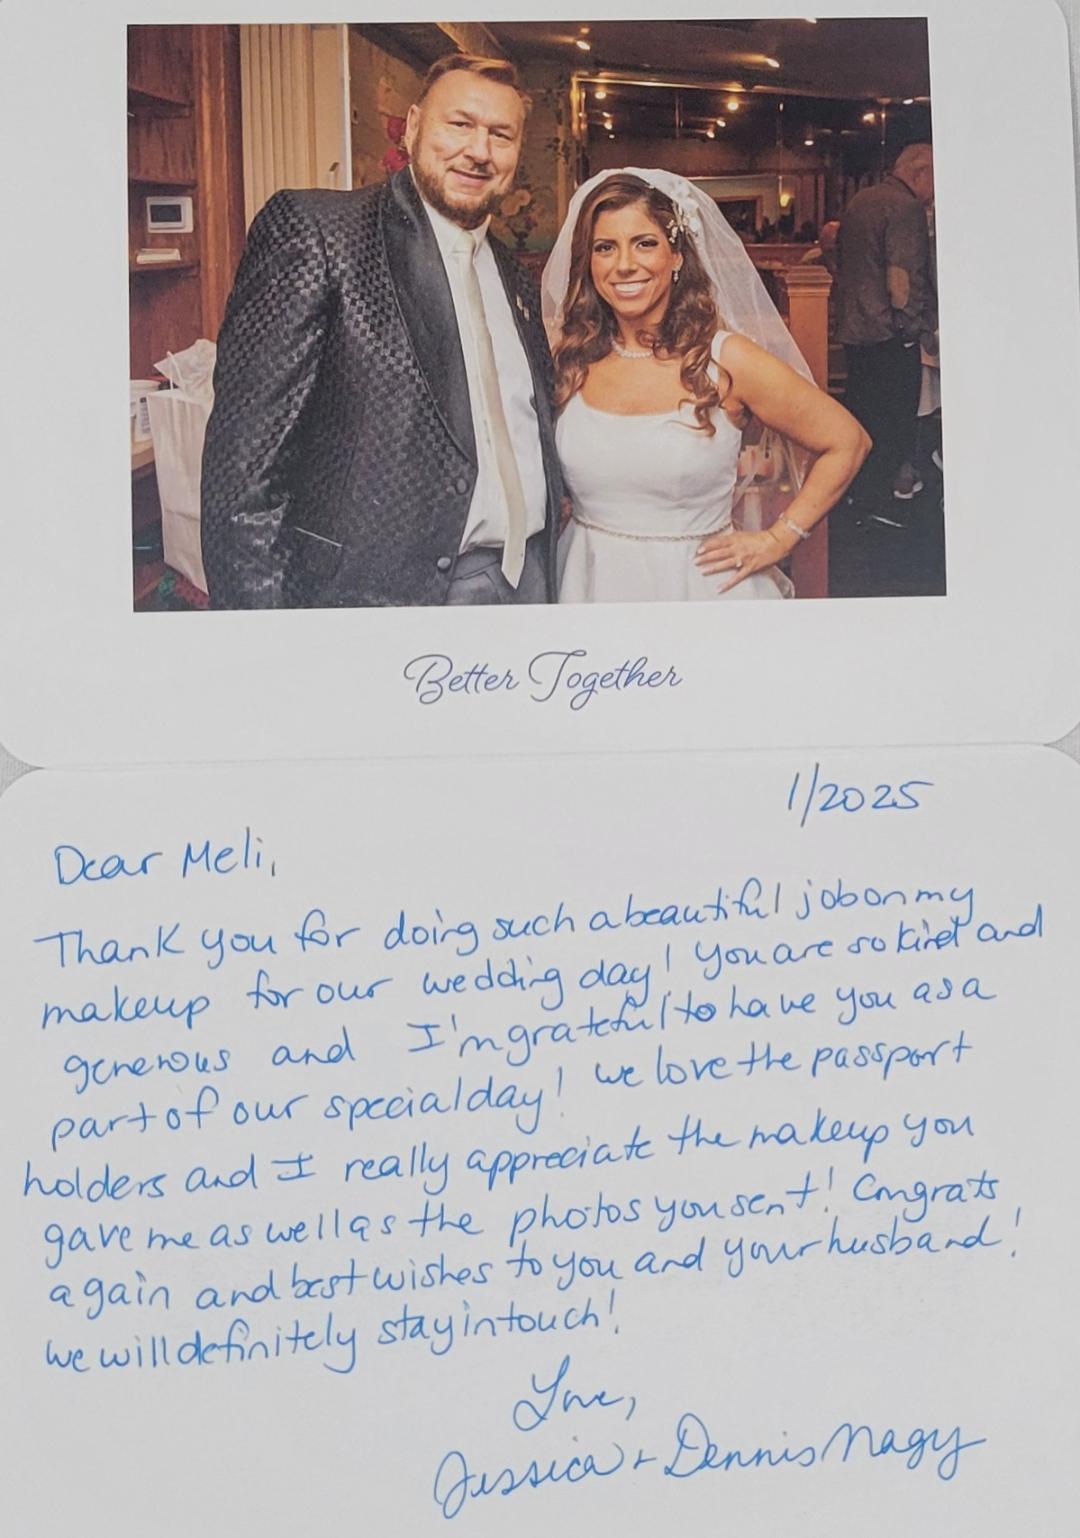 Better Together
1/2025
Dear Meli,
Thank you for doing such a beautiful job on my
makeup for our wedding day! You are so kind and
generous and I'm grateful to have you as a
part of our special day! We love the passport
holders and I really appreciate the makeup you
gave me as well as the photos you sent! Congrats
again and best wishes to you and your husband!
We will definitely stay in touch!
Love,
Jessica + Dennis Nagy